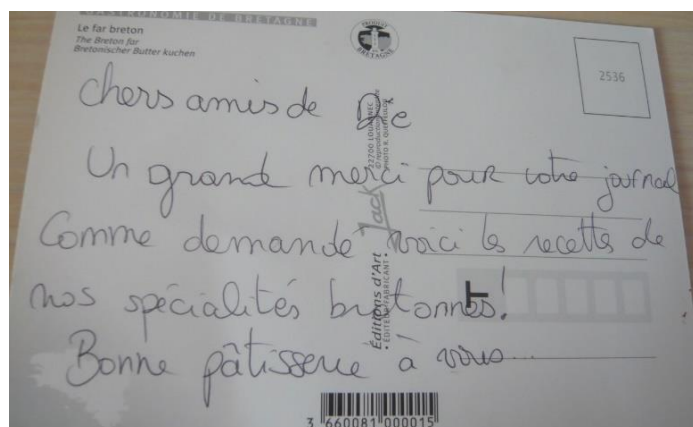 GASTRONOMIE DE BRETAGNE
Le far breton
The Breton far
Bretonischer Butter kuchen
PRODUIT
BRETAGNE
2536
chers amis de 2e
Un grande merci pour votre journal
Comme demandé voici les recettes de
nos spécialités bretonnes!
Bonne pâtisserie à vous...
Éditions d'Art Jack
• ÉDITEUR FABRICANT •
22700 LOUANNEC
© reproduction interdite
PHOTO R. QUETTEULOU
T
3 660081 000015